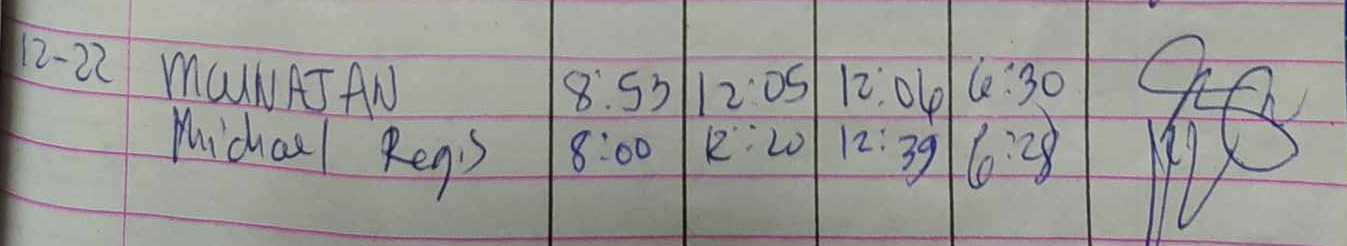 12-22 MaWNAJAN 8:53 12:05 12:06 6:30
Michael Regis 8:00 12:20 12:39 6:28